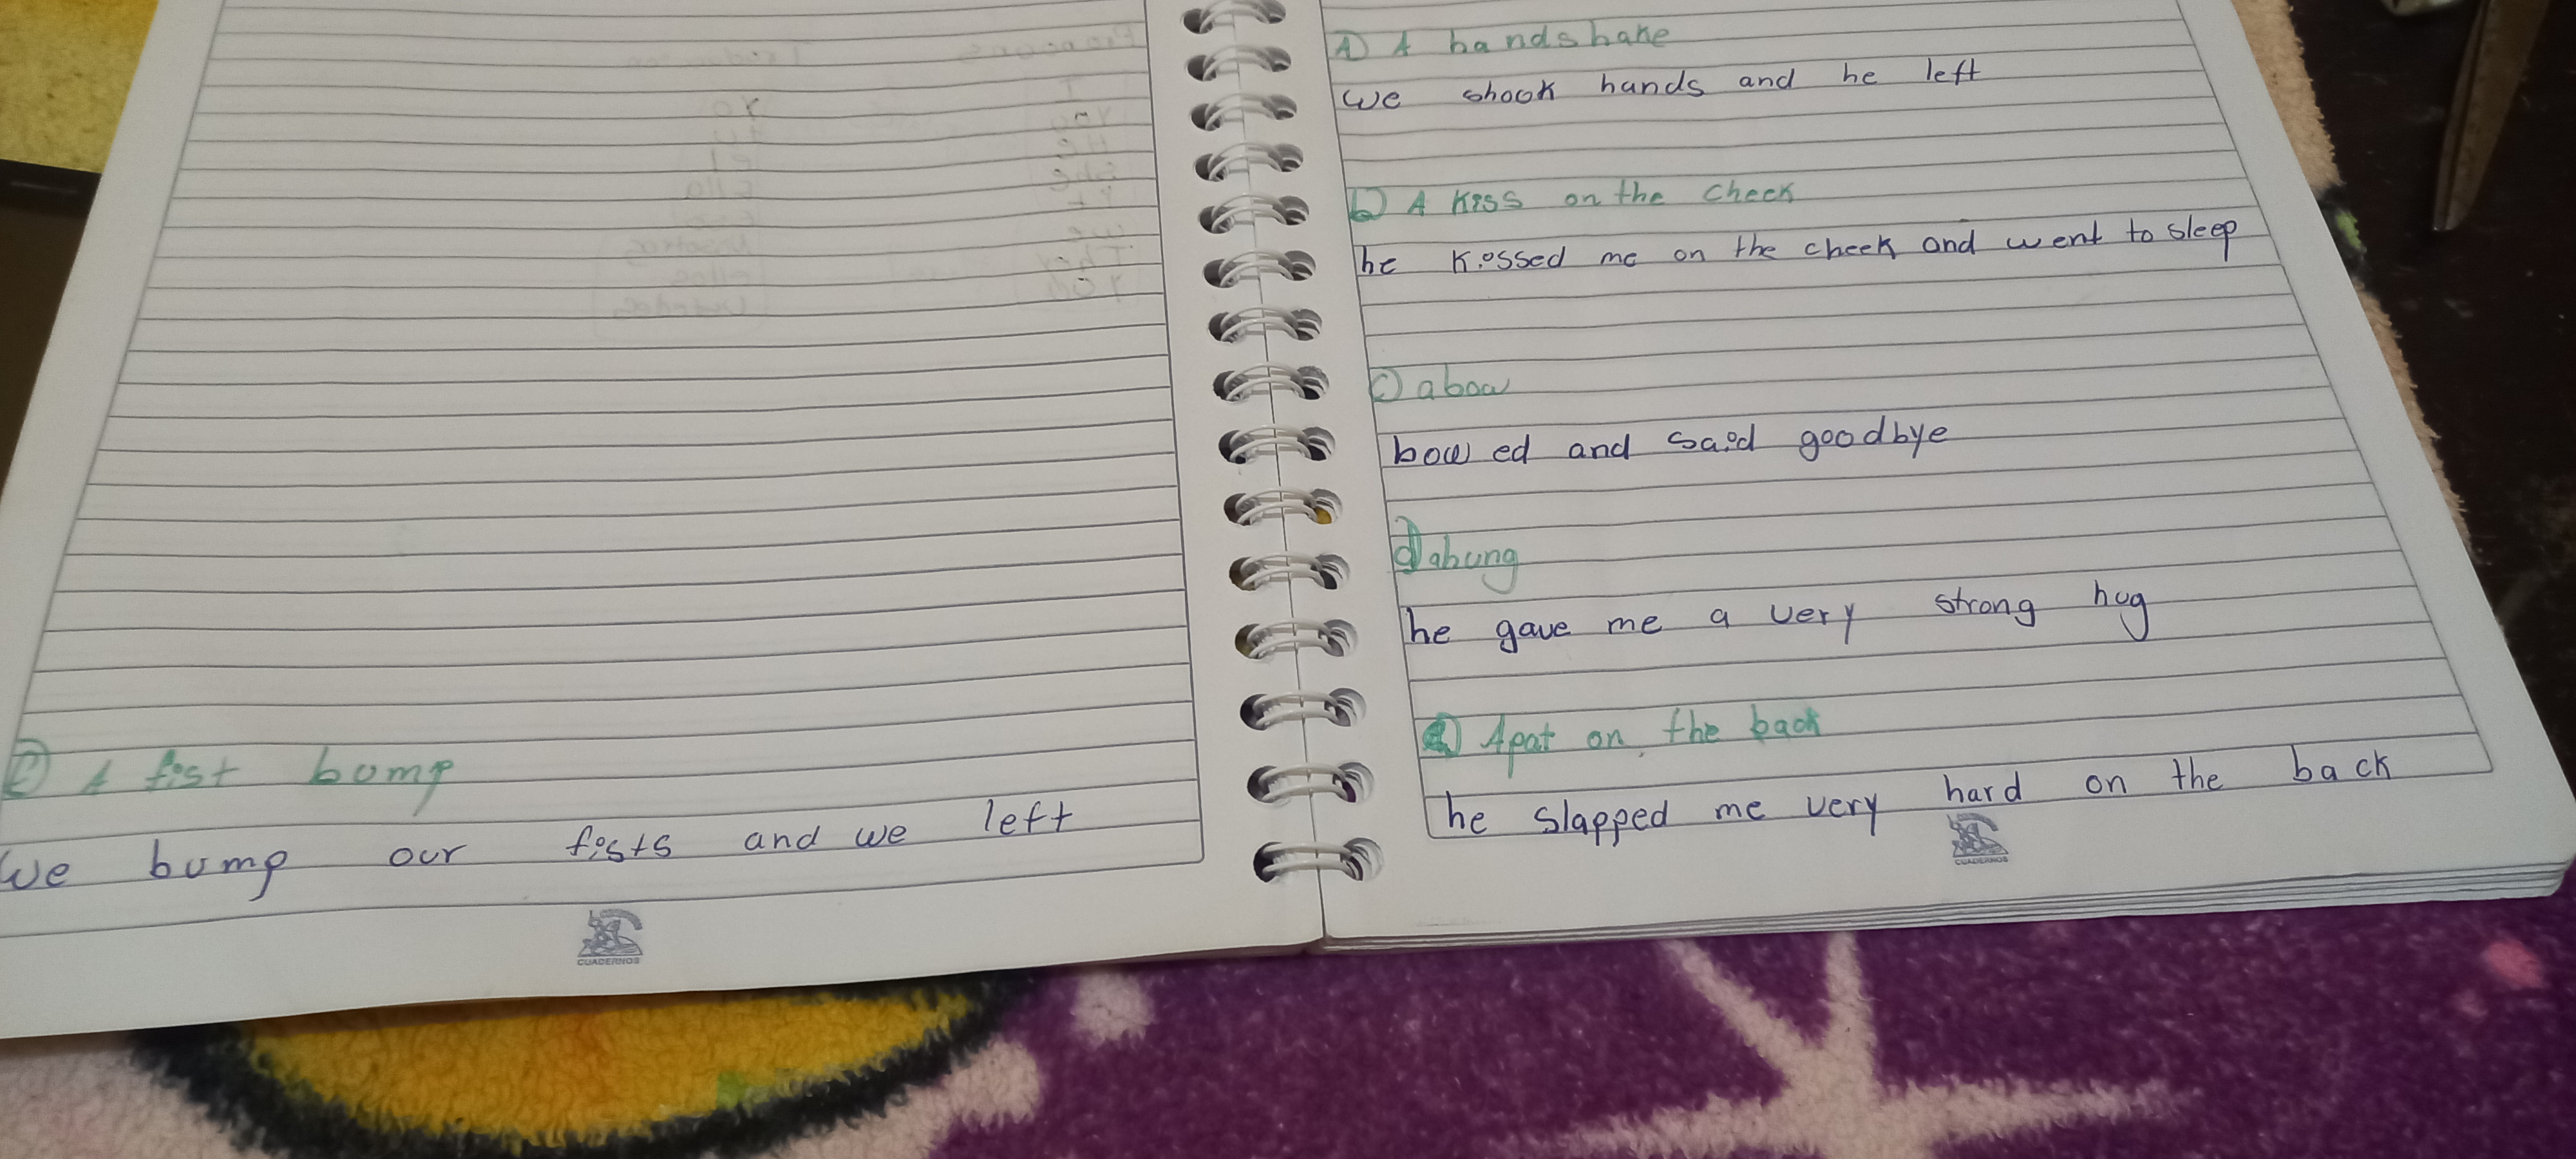 A) A handshake
we shook hands and he left
b) A kiss on the cheek
he kissed me on the cheek and went to sleep
c) a bow
bow ed and said goodbye
d) ahung
he gave me a very strong hug
e) Apat on the back
he slapped me very hard on the back
CUADERNOS
A fist bump
we bump our fists and we left
CUADERNOS